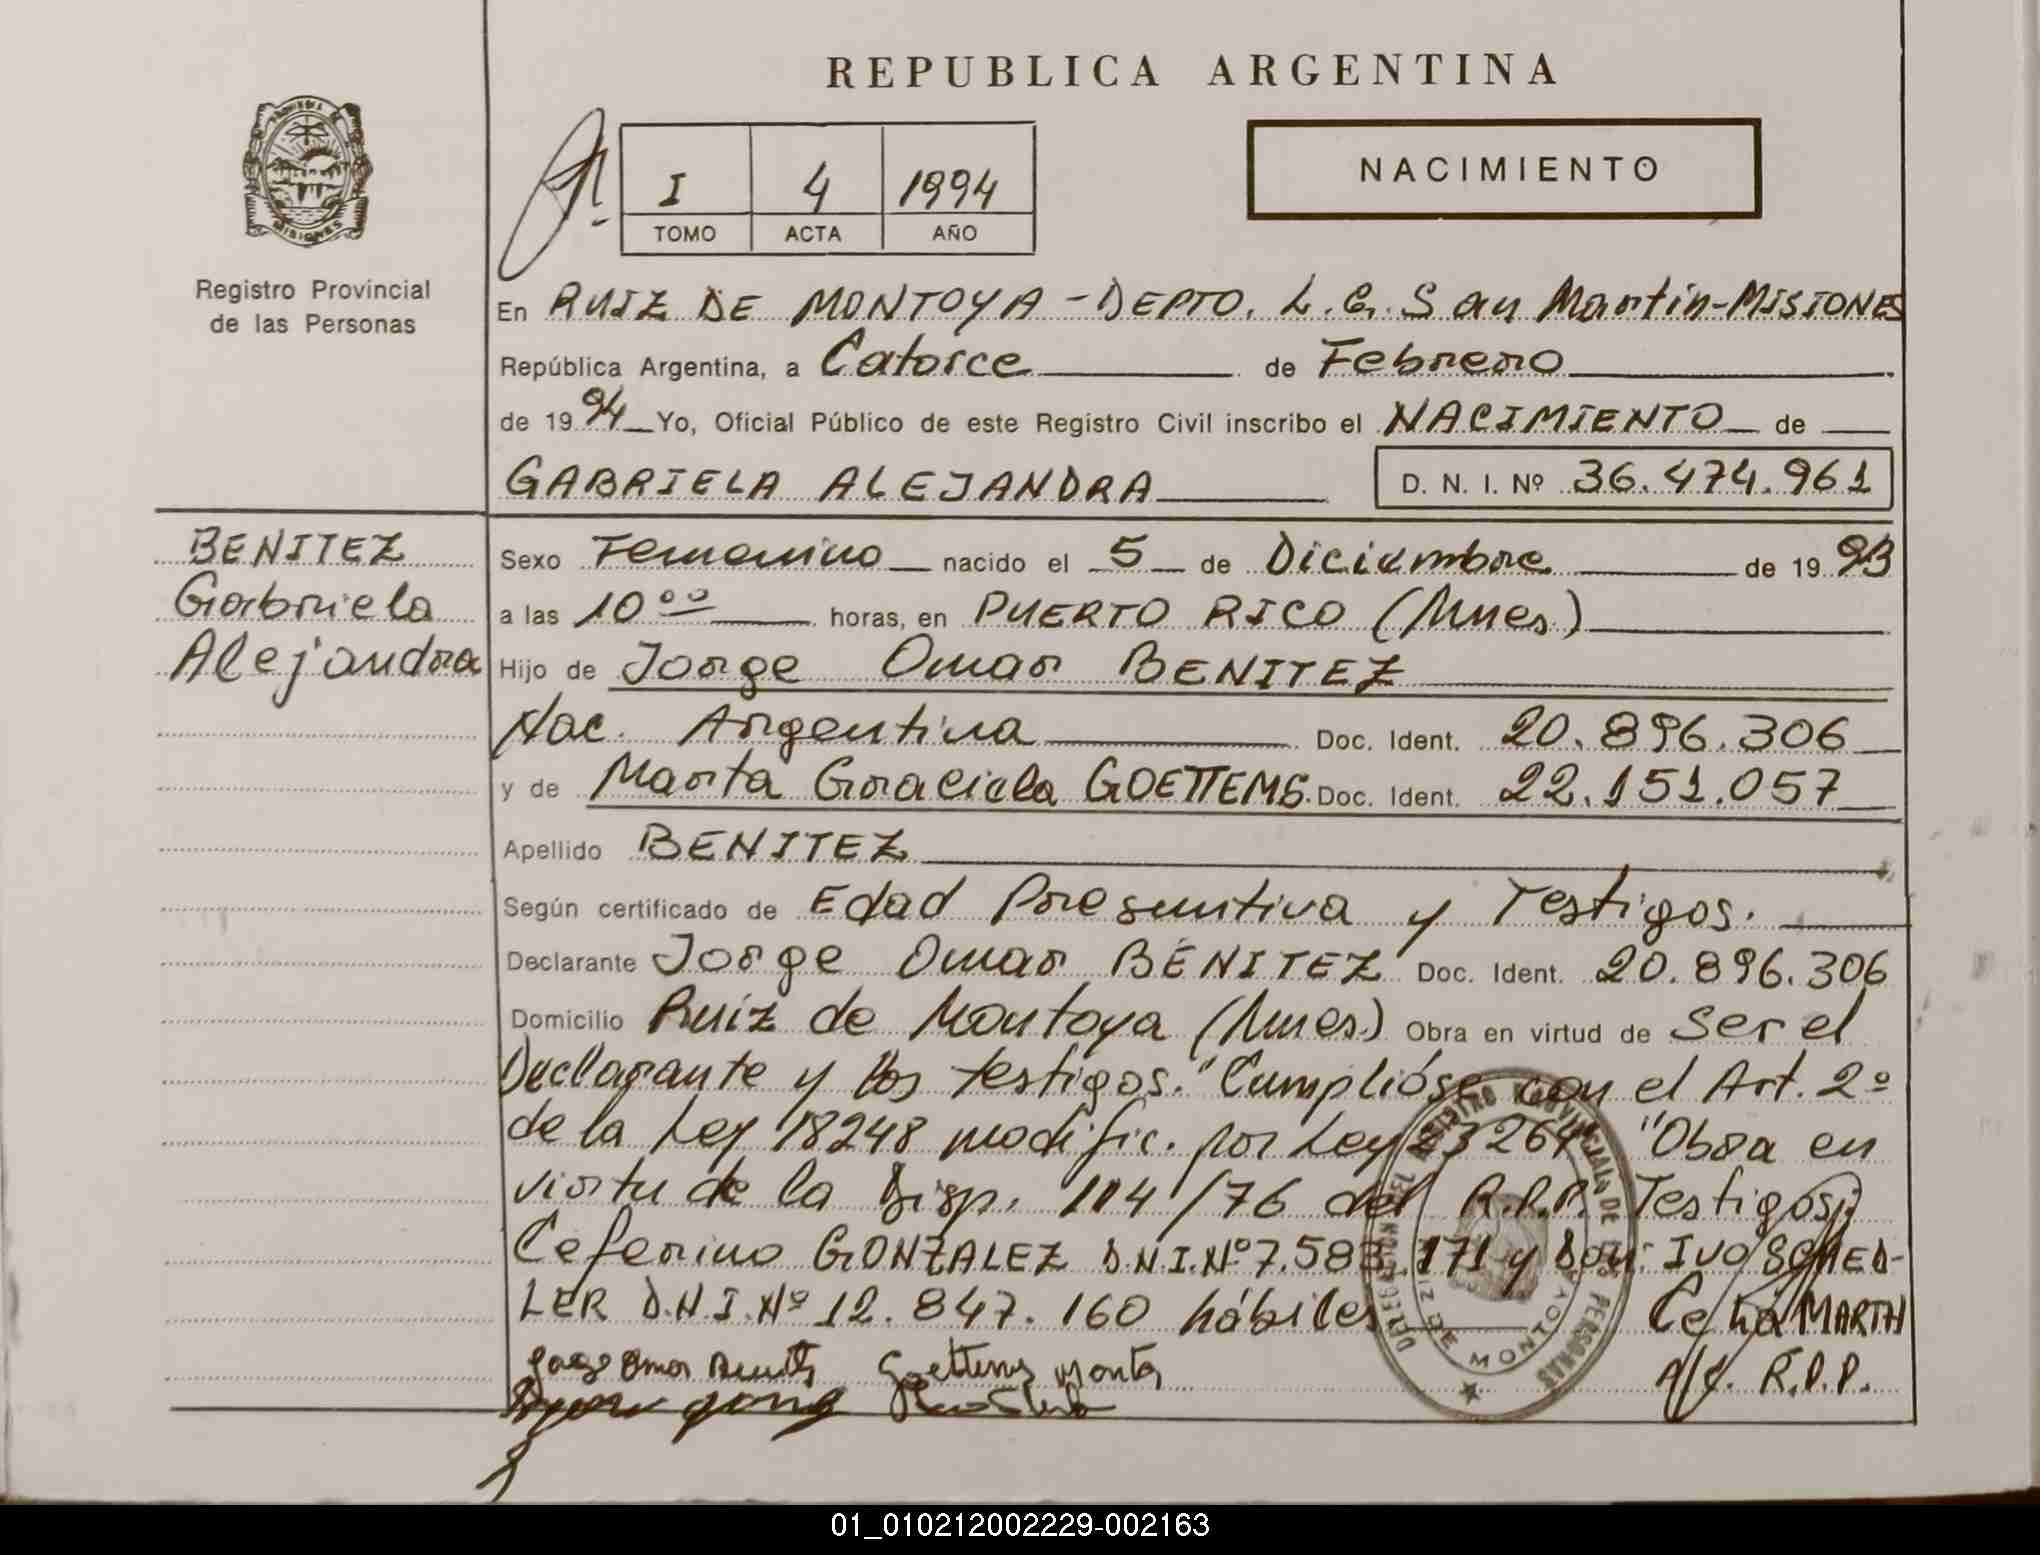 REPUBLICA ARGENTINA
I 4 1994
TOMO ACTA AÑO
NACIMIENTO
MISIONES
Registro Provincial
de las Personas
En RUIZ DE MONTOYA - DEPTO. L. G. San Martin - MISIONES
República Argentina, a Catorce de Febrero
de 1994 Yo, Oficial Público de este Registro Civil inscribo el NACIMIENTO de
GABRIELA ALEJANDRA D. N. I. Nº 36.474.961
BENITEZ
Gabriela
Alejandra
Sexo Femenino nacido el 5 de Diciembre de 1993
a las 10 ºº horas, en PUERTO RICO (Mnes.)
Hijo de Jorge Omar BENITEZ
Nac. Argentina Doc. Ident. 20.896.306
y de Marta Graciela GOETTEMS. Doc. Ident. 22.151.057
Apellido BENITEZ
Según certificado de Edad Presuntiva y Testigos.
Declarante Jorge Omar BENITEZ Doc. Ident. 20.896.306
Domicilio Ruiz de Montoya (Mnes.) Obra en virtud de Ser el
Declarante y los testigos. "Cumplióse con el Art. 2º
de la Ley 18248 modific. por Ley 23264 "Obra en
virtu de la Disp. 114/76 del R.R.P. Testigos:
Ceferino GONZALEZ D.N.I.Nº 7.583.171 y Don: IVO SCHED-
LER D.N.I.Nº 12.847.160 hábiles
DELEGACION DEL REGISTRO PROVINCIAL DE LAS PERSONAS
RUIZ DE MONTOYA
Jorge Omar Benitez Goettems Marta
Celia MARTH
A/C. R.P.P.
01_010212002229-002163